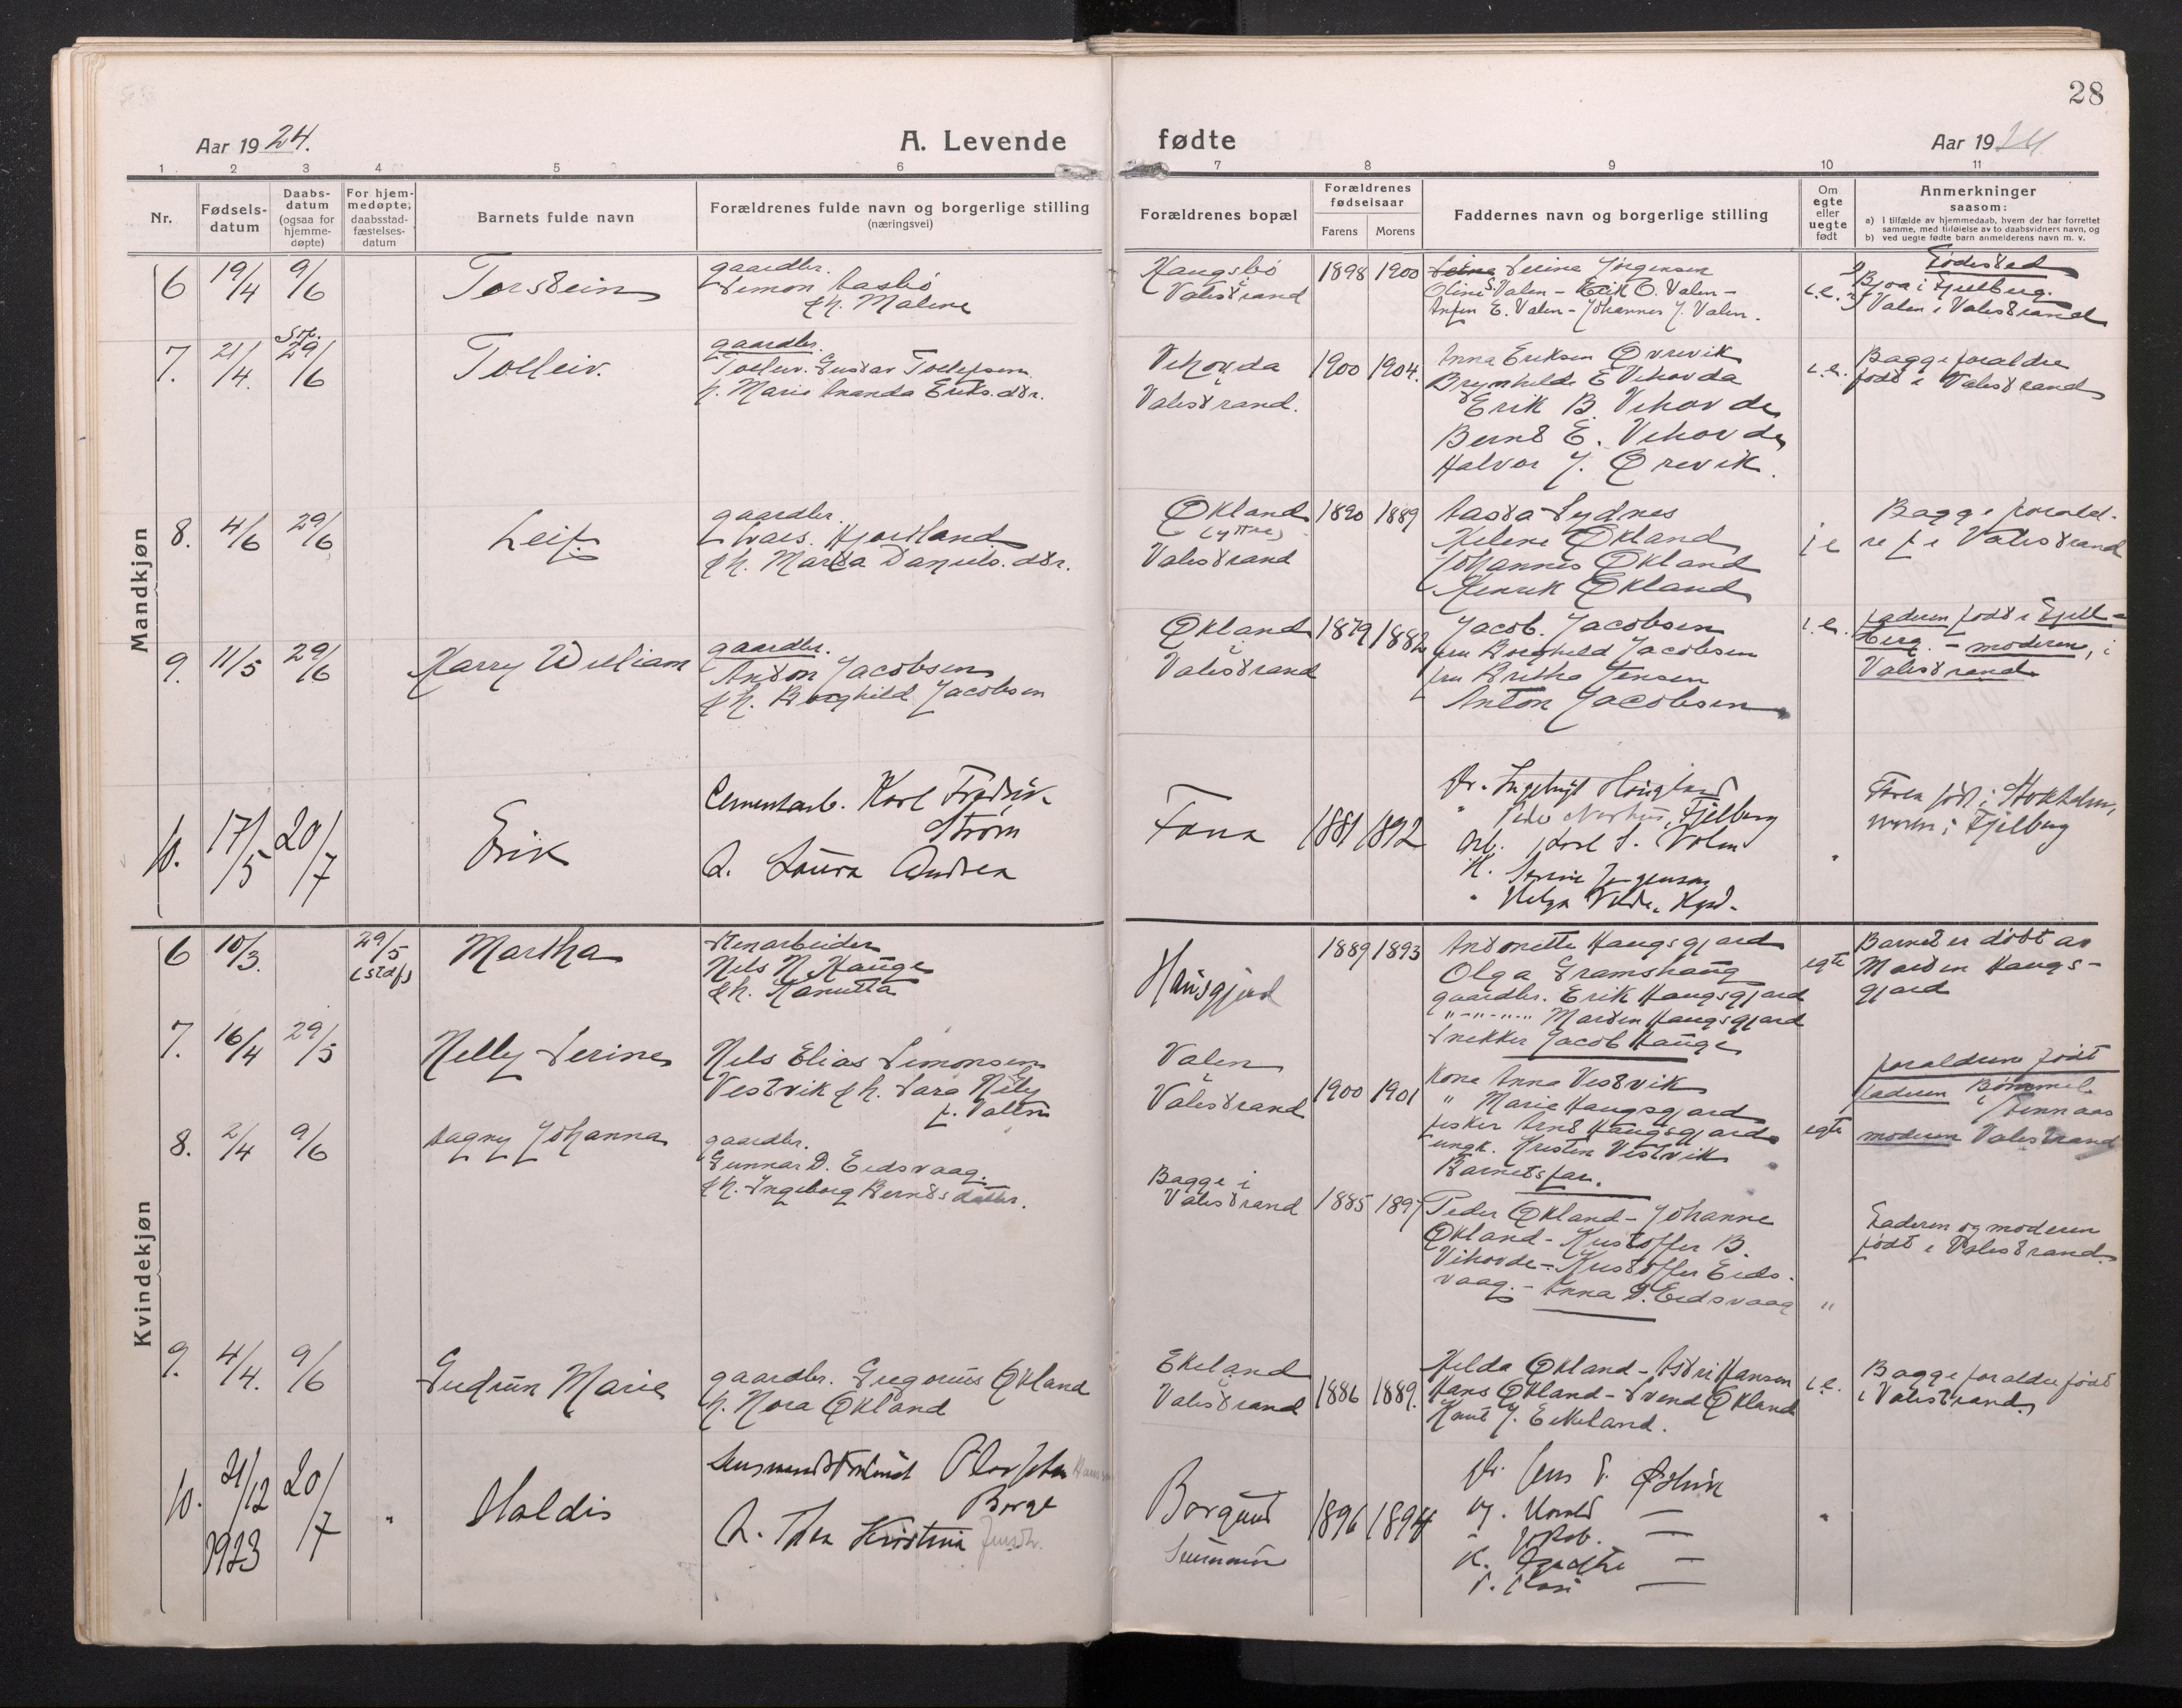 28
Aar 1924.
A. Levende
fødte
Aar 1924
1 2 3 4 5 6 7 8 9 10 11
Nr.
Fødsels-
datum
Daabs-
datum
(ogsaa for
hjemme-
døpte)
For hjem-
medøpte,
daabsstad-
fæstelses-
datum
Barnets fulde navn
Forældrenes fulde navn og borgerlige stilling
(næringsvei)
Forældrenes bopæl
Forældrenes
fødselsaar
Farens Morens
Faddernes navn og borgerlige stilling
Om
egte
eller
uegte
født
Anmerkninger
saasom:
a) i tilfælde av hjemmedaab, hvem der har forrettet
samme, med tilføielse av to daabsvidners navn, og
b) ved uegte fødte barn anmelderens navn m. v.
Mandkjøn
6 19/4 9/6
Torstein
gaardbr.
Simon Aasbö
& h. Malene
Haugsbö
i
Valestrand
1898 1900
Serina Jörgensen
Oline S. Valen - Erik O. Valen -
Anfin E. Valen - Johannes J. Valen.
i.e.
Födested
Bjoa i Fjelberg.
Valen i Valestrand
7. 21/4. 29/6
Tolleiv.
gaardbr.
Tolleiv. Gustav Tollefsen
h. Marie Ananda Eriks. dtr.
Vihovda
i
Valestrand.
1900 1904.
Anna Eriksen Øvrevik
Brynhilde E Vihovda
Erik B. Vihovda
Bernt E. Vihovda
Halvor J. Ørevik.
i.e.
Bagge foraldre
født i Valestrand
8. 4/6 29/6
Leif.
gaardbr.
Lvars. Hjortland
& h. Marta Daniels. dtr.
Økland
(yttre)
Valestrand
1890 1889
Aasta Sydnes
Helene Økland
Johannes Økland
Henrik Økland
i e
Bagge forald-
re f i Valestrand
9. 11/5 29/6
Harry William
gaardbr.
Anton Jacobsen
& h. Borghild Jacobsen
Økland
i
Valestrand
1879 1882
Jacob. Jacobsen
fru Borghild Jacobsen
fru Britha Jensen
Anton Jacobsen
i.e.
faderen født i Fjell-
berg. - moderen, i
Valestrand
10. 17/5 20/7
Erik
Cementarb. Karl Fredrik
Strøm
h. Laura Andrea
Fana
1881 1892
Fjelberg
Arb. Karl S. Valen
K. Serine Jørgensen
Faren født i Stokholm,
moren i Fjelberg
Kvindekjøn
6 10/3. 29/5
(stdf)
Martha
Stenarbeider
Nils N. Hauge
& h. Kanutta
Haugsgjerd
1889 1893
Antonette Haugsgjard
Olga Gramshaug
gaardbr. Erik Haugsgjard
" - " - " - " Marten Haugsgjard
Snekker Jacob Hauge
egte
Barnet er döbt av
Marten Haugs-
gjard
7. 16/4 29/5
Nelly Serine
Nils Elias Simonsen
Vestvik & h. Sara Nely
f. Valen
Valen
i
Valestrand
1900 1901
Kone Anna Vestvik
" Marie Haugsgjard
fisker Arnt Haugsgjard
ungk. Kristen Vestvik
Barnets far.
egte
foraldrene født
faderen i Bömmel
Finnaas
moderen Valestrand
8. 2/4 9/6
Dagny Johanna
gaardbr.
Gunnar D. Eidsvaag.
& h. Ingeborg Berntsdatter.
Bagge i
Valestrand
1885 1897
Peder Økland - Johanne
Økland - Kristoffer B.
Vihovde - Kristoffer Eids-
vaag. - Anna D. Eidsvaag
"
Faderen og moderen
født i Valestrand
9. 4/4. 9/6
Gudrun Marie
gaardbr. Gregorius Økland
h. Nora Økland
Ekeland
i
Valestrand
1886 1889.
Hilda Økland - Astri Hansen
Hans Økland - Svend Økland
Knut J. Eikeland.
i.e.
Bagge foraldre født
i Valestrand
10. 21/12 1923 20/7 "
Haldis
Olav Johan
Borge
h. Thea Kristina
Borgund
Sunnmör
1896 1894
Jens
Harald —
Jakob. —